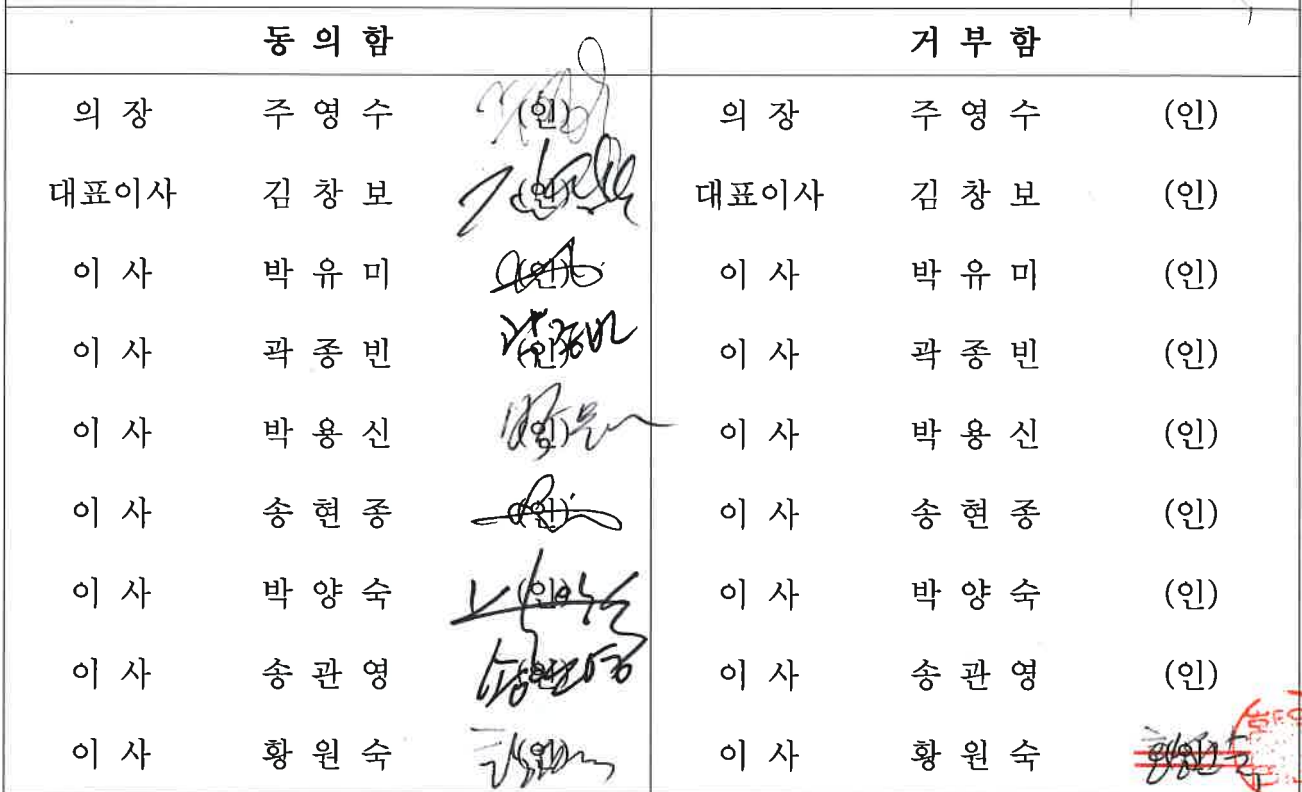 동 의 함 거 부 함
의 장 주 영 수 (인) 의 장 주 영 수 (인)
대표이사 김 창 보 (인) 대표이사 김 창 보 (인)
이 사 박 유 미 (인) 이 사 박 유 미 (인)
이 사 곽 종 빈 (인) 이 사 곽 종 빈 (인)
이 사 박 용 신 (인) 이 사 박 용 신 (인)
이 사 송 현 종 (인) 이 사 송 현 종 (인)
이 사 박 양 숙 (인) 이 사 박 양 숙 (인)
이 사 송 관 영 (인) 이 사 송 관 영 (인)
이 사 황 원 숙 (인) 이 사 황 원 숙 (인)